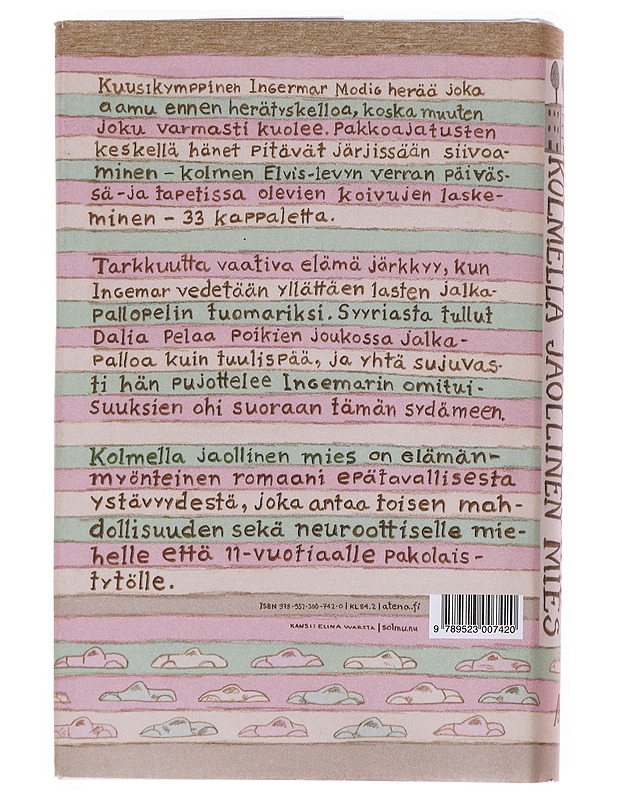 Kuusikymppinen Ingermar Modig herää joka
aamu ennen herätyskelloa, koska muuten
joku varmasti kuolee. Pakkoajatusten
keskellä hänet pitävät järjissään siivoa-
minen – kolmen Elvis-levyn verran päiväs-
sä – ja tapetissa olevien koivujen laske-
minen – 33 kappaletta.
Tarkkuutta vaativa elämä järkkyy, kun
Ingemar vedetään yllättäen lasten jalka-
pallopelin tuomariksi. Syyriasta tullut
Dalia pelaa poikien joukossa jalka-
palloa kuin tuulispää, ja yhtä sujuvas-
ti hän pujottelee Ingemarin omitui-
suuksien ohi suoraan tämän sydämeen.
Kolmella jaollinen mies on elämän-
myönteinen romaani epätavallisesta
ystävyydestä, joka antaa toisen mah-
dollisuuden sekä neuroottiselle mie-
helle että 11-vuotiaalle pakolais-
tytölle.
ISBN 978-952-300-742-0 | KL 84.2 | atena.fi
KANSI: ELINA WARSTA | solmu.nu
9 789523 007420
KOLMELLA JAOLLINEN MIES